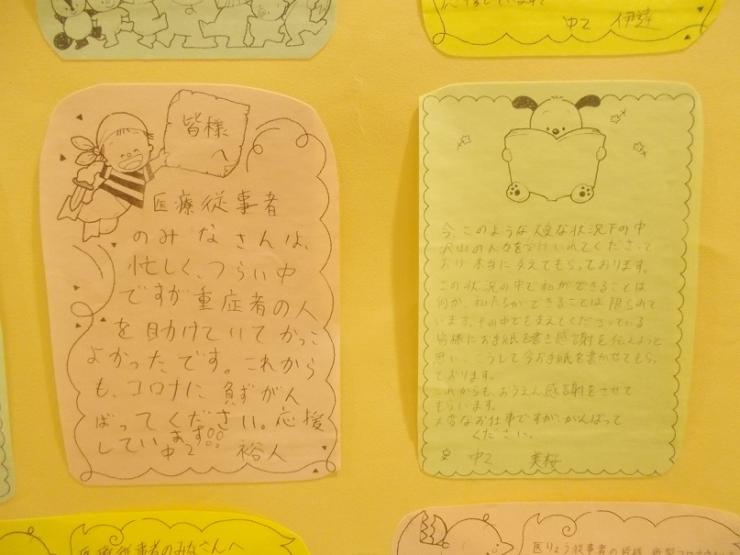 中2 伊達
皆様
へ
医療従事者
のみなさんは、
忙しく、つらい中
ですが重症者の人
を助けていてかっこ
よかったです。これから
も、コロナに負ずがん
ばってください。応援
しています!!
中2 裕人
今、このような大変な状況下の中
沢山の人々を受けいれてくださって
おり本当に支えてもらっております。
この状況の中で私ができることは
何か、私たちができることは限られて
います。その中でも支えてくださっている
皆様にお手紙を書き感謝を伝えようと
思い、こうして今お手紙を書かせてもら
っております。
これからも、おうえん感謝をさせて
もらいます。
大変なお仕事ですが、がんばって
ください。
中2 美桜
医療従事者のみなさんへ
医りょう従事者の皆様